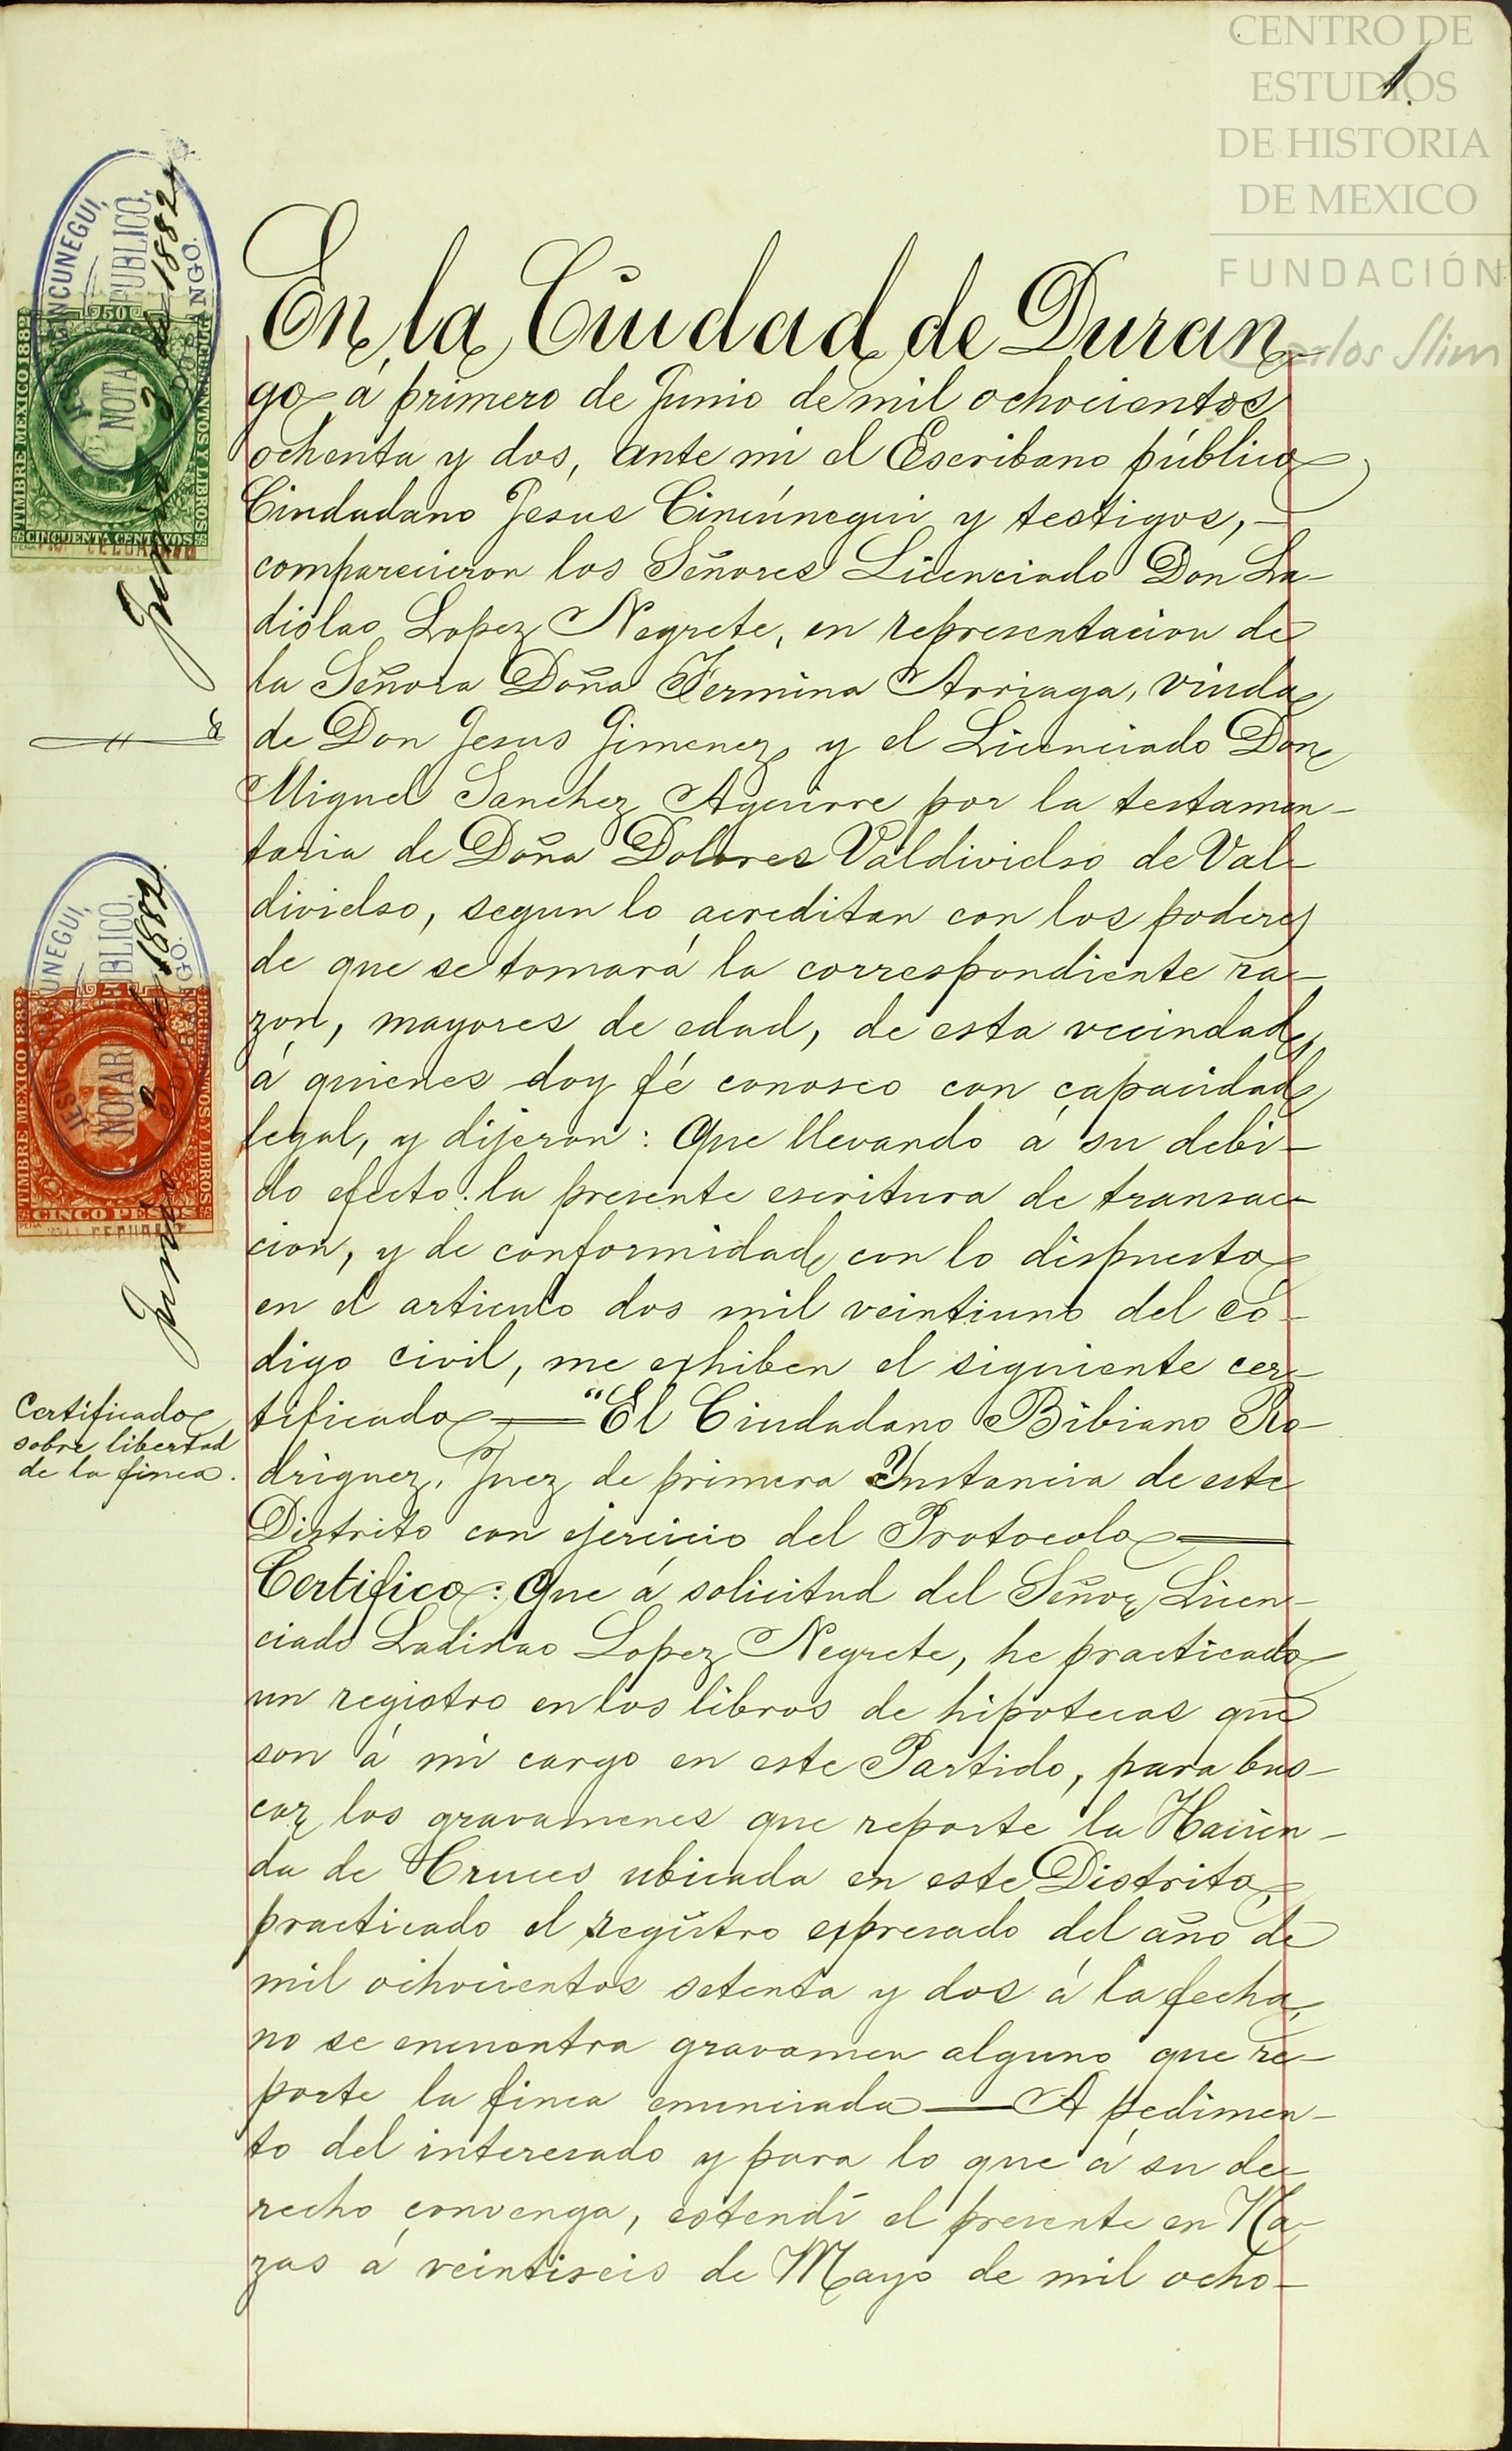 CENTRO DE
ESTUDIOS
DE HISTORIA
DE MEXICO
FUNDACIÓN
Carlos Slim
1.
JESUS CINCUNEGUI,
NOTARIO PUBLICO,
DURANGO.
Junio 3 de 1882
50
TIMBRE MEXICO 1882
DOCUMENTOS Y LIBROS
CINCUENTA CENTAVOS
En la Ciudad de Duran
go á primero de Junio de mil ochocientos
ochenta y dos, ante mi el Escribano público
Ciudadano Jesus Cincúnegui y testigos,
comparecieron los Señores Licenciado Don La-
dislao Lopez Negrete, en representacion de
la Señora Doña Fermina Arriaga, viuda
de Don Jesus Jimenez y el Licenciado Don
Miguel Sanchez Aguirre por la testamen-
taria de Doña Dolores Valdivielso de Val-
divielso, segun lo acreditan con los poderes
de que se tomará la correspondiente ra-
zon, mayores de edad, de esta vecindad,
á quienes doy fé conosco con capacidad
legal, y dijeron: Que llevando á su debi-
do efecto la presente escritura de transac-
cion, y de conformidad con lo dispuesto
en el articulo dos mil veintiuno del có-
digo civil, me exhiben el siguiente cer-
tificado — "El Ciudadano Bibiano Ro-
driguez, Juez de primera Instancia de este
Distrito con ejercicio del Protocolo —
Certifico: Que á solicitud del Señor Licen-
ciado Ladislao Lopez Negrete, he practicado
un registro en los libros de hipotecas que
son á mi cargo en este Partido, para bus-
car los gravamenes que reporte la Hacien-
da de Cruces ubicada en este Distrito,
practicado el registro expresado del año de
mil ochocientos setenta y dos á la fecha,
no se encuentra gravamen alguno que re-
porte la finca enunciada — A pedimen-
to del interesado y para lo que á su de-
recho convenga, estendí el presente en Na-
zas á veintiseis de Mayo de mil ocho-
JESUS CINCUNEGUI,
NOTARIO PUBLICO,
DURANGO.
Junio 3 de 1882.
5
TIMBRE MEXICO 1882
DOCUMENTOS Y LIBROS
CINCO PESOS
Certificado
sobre libertad
de la finca.